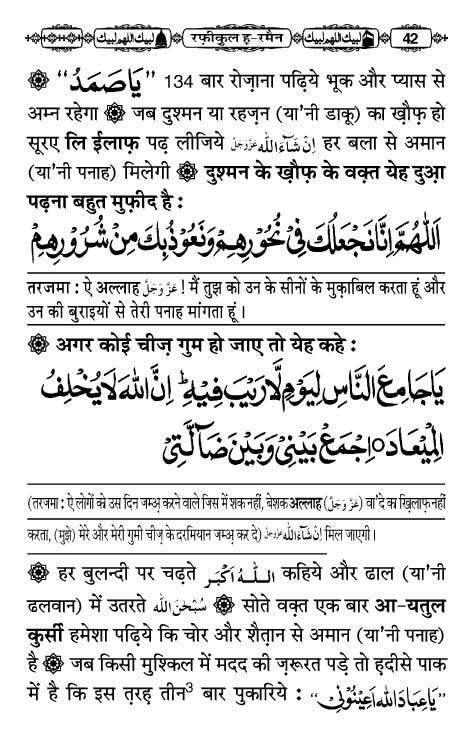 لبيك اللهم لبيك रफ़ीकुल ह-रमैन لبيك اللهم لبيك 42
“يَاصَمَدُ” 134 बार रोज़ाना पढ़िये भूक और प्यास से
अम्न रहेगा जब दुश्मन या रहज़न (या'नी डाकू) का ख़ौफ़ हो
सूरए लि ईलाफ़ पढ़ लीजिये اِنْ شَآءَ اللّٰه عَزَّوَجَلَّ हर बला से अमान
(या'नी पनाह) मिलेगी दुश्मन के ख़ौफ़ के वक़्त येह दुआ़
पढ़ना बहुत मुफ़ीद है :
اَللّٰهُمَّ اِنَّا نَجْعَلُكَ فِيْ نُحُوْرِهِمْ وَنَعُوْذُبِكَ مِنْ شُرُوْرِهِمْ
तरजमा : ऐ अल्लाह عَزَّوَجَلَّ ! मैं तुझ को उन के सीनों के मुक़ाबिल करता हूं और
उन की बुराइयों से तेरी पनाह मांगता हूं ।
अगर कोई चीज़ गुम हो जाए तो येह कहे :
يَاجَامِعَ النَّاسِ لِيَوْمٍ لَّا رَيْبَ فِيْهِ ؕ اِنَّ اللّٰهَ لَا يُخْلِفُ
الْمِيْعَادَ ○ اِجْمَعْ بَيْنِيْ وَبَيْنَ ضَآلَّتِيْ
(तरजमा : ऐ लोगों को उस दिन जम्अ़ करने वाले जिस में शक नहीं, बेशक अल्लाह (عَزَّوَجَلَّ) वा'दे का ख़िलाफ़ नहीं
करता, (मुझे) मेरे और मेरी गुमी चीज़ के दरमियान जम्अ़ कर दे) اِنْ شَآءَ اللّٰه عَزَّوَجَلَّ मिल जाएगी ।
हर बुलन्दी पर चढ़ते اَللّٰهُ اَكْبَر कहिये और ढाल (या'नी
ढलवान) में उतरते سُبْحٰنَ اللّٰه सोते वक़्त एक बार आ-यतुल
कुर्सी हमेशा पढ़िये कि चोर और शैतान से अमान (या'नी पनाह)
है जब किसी मुश्किल में मदद की ज़रूरत पड़े तो ह़दीसे पाक
में है कि इस त़रह़ तीन3 बार पुकारिये : “يَاعِبَادَ اللّٰهِ اَعِيْنُوْنِيْ”